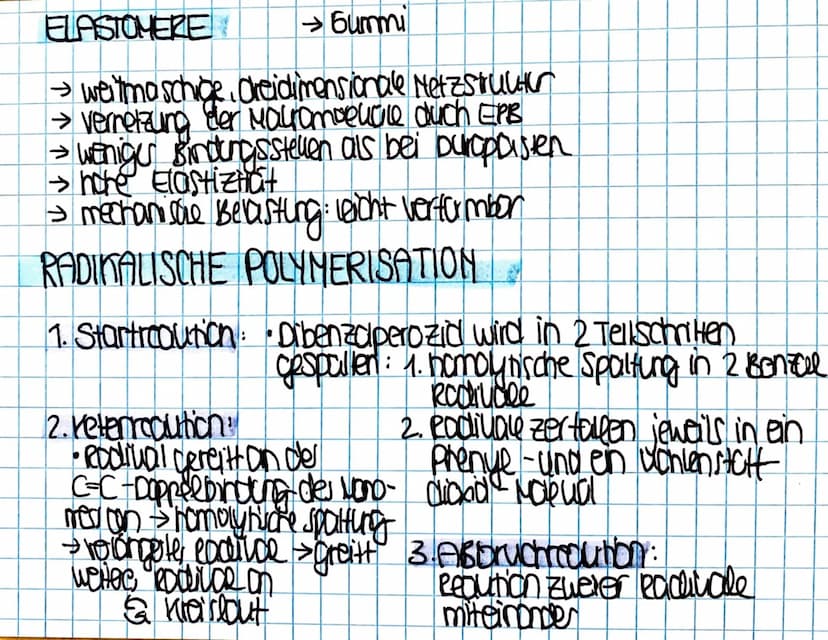 ELASTOMERE → Gummi
→ weitmaschige, dreidimensionale Netzstruktur
→ Vernetzung der Makromoleküle durch EPB
→ weniger Bindungsstellen als bei Duroplasten
→ hohe Elastizität
→ mechanische Belastung: leicht verformbar
RADIKALISCHE POLYMERISATION
1. Startreaktion: • Dibenzolperoxid wird in 2 Teilschritten
gespalten: 1. homolytische Spaltung in 2 Benzol
Radikale
2. Kettenreaktion:
• Radikal greift an der
C=C-Doppelbindung des Mono-
mers an → homolytische Spaltung
→ verlängerte Radikale → greift
weitere Radikale an
Kreislauf
2. Radikale zerfallen jeweils in ein
Phenyl- und ein Kohlenstoff-
dioxid - Molekül
3. Abbruchreaktion:
Reaktion zweier Radikale
miteinander